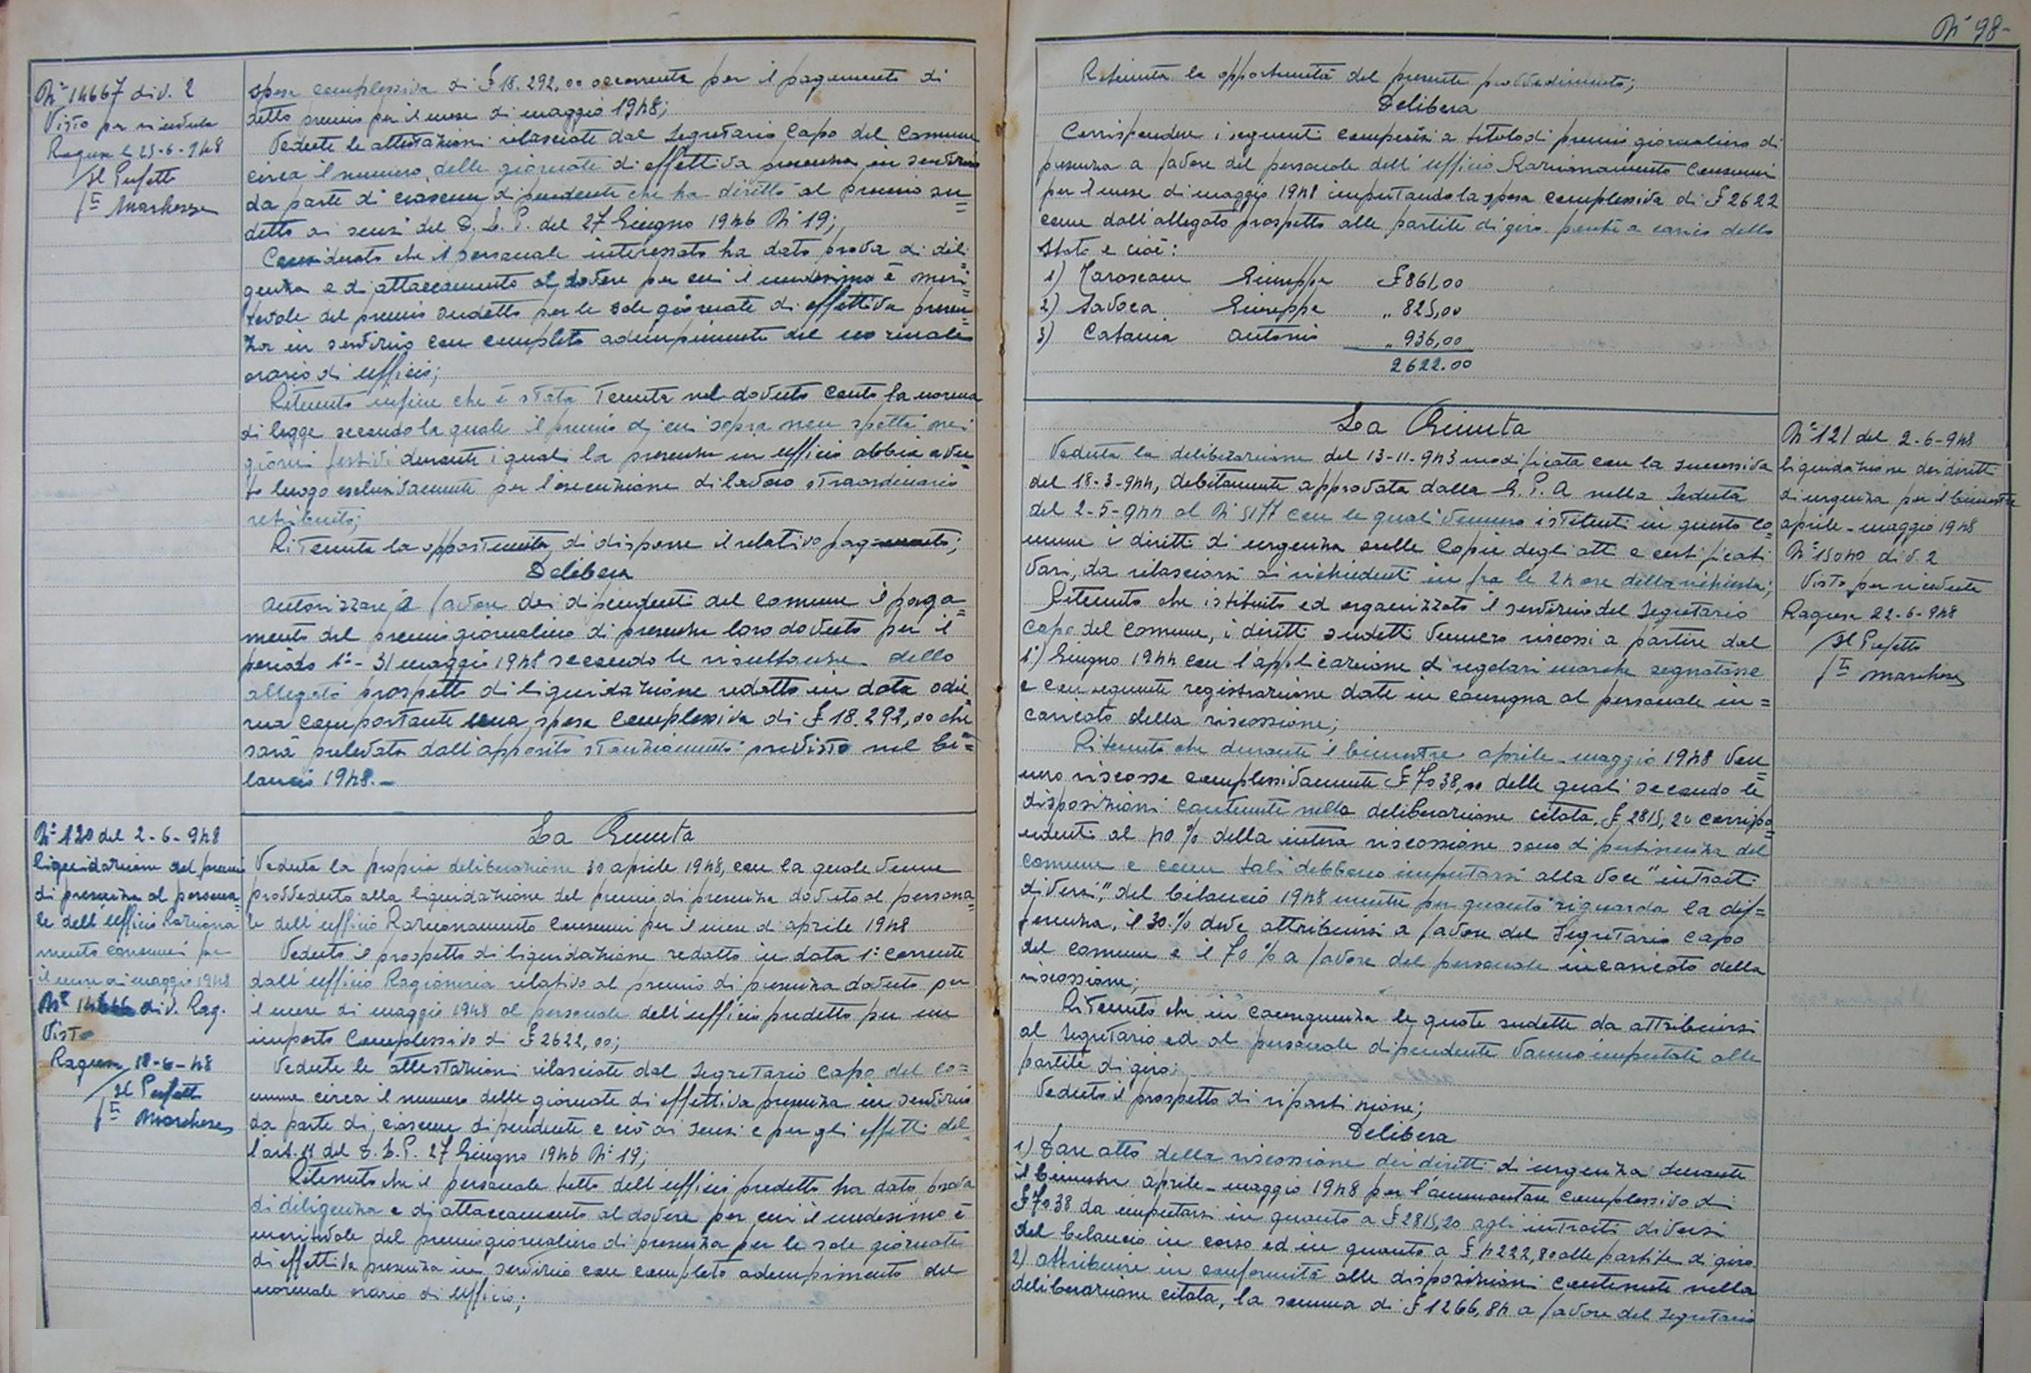 N° 98-
N° 14667 div. 2
Visto per ricevuta
Ragusa li 25-6-948
Il Prefetto
F.to Marchese
spesa complessiva di £ 18.292,00 occorrente per il pagamento di
detto premio per il mese di maggio 1948;
Vedute le attestazioni rilasciate dal Segretario Capo del Comune
circa il numero delle giornate di effettiva presenza in servizio
da parte di ciascun dipendente che ha diritto al premio su=
detto ai sensi del D. L. P. del 27 Giugno 1946 N° 19;
Considerato che il personale interessato ha dato prova di dili=
genza e di attaccamento al dovere per cui il medesimo è meri=
tevole del premio sudetto per le sole giornate di effettiva presen=
za in servizio con completo adempimento del normale
orario di ufficio;
Ritenuto infine che è stata tenuta nel dovuto conto la norma
di legge secondo la quale il premio di cui sopra non spetta nei
giorni festivi durante i quali la presenza in ufficio abbia avu=
to luogo esclusivamente per l'esecuzione di lavoro straordinario
retribuito;
Ritenuta la opportunità di disporre il relativo pagamento;
Delibera
Autorizzare a favore dei dipendenti del comune il paga=
mento del premio giornaliero di presenza loro dovuto per il
periodo 1°- 31 maggio 1948 secondo le risultanze dello
allegato prospetto di liquidazione redatto in data odier
na comportante una spesa complessiva di £ 18.292,00 che
sarà prelevata dall'apposito stanziamento previsto nel bi=
lancio 1948.-
N° 120 del 2-6-948
Liquidazione del premio
di presenza al persona=
le dell'Ufficio Raziona
mento consumi per
il mese di maggio 1948
N° 14666 div. Rag.
Visto
Ragusa 18-6-48
Il Prefetto
F.to Marchese
La Giunta
Veduta la propria deliberazione 30 aprile 1948, con la quale venne
provveduto alla liquidazione del premio di presenza dovuto al persona=
le dell'ufficio Razionamento Consumi per il mese di aprile 1948
Veduto il prospetto di liquidazione redatto in data 1° corrente
dall'ufficio Ragioneria relativo al premio di presenza dovuto per
il mese di maggio 1948 al personale dell'ufficio predetto per un
importo complessivo di £ 2622,00;
Vedute le attestazioni rilasciate dal Segretario Capo del co=
mune circa il numero delle giornate di effettiva presenza in servizio
da parte di ciascun dipendente e ciò ai sensi e per gli effetti del=
l'art. 11 del D. L. P. 27 Giugno 1946 N° 19;
Ritenuto che il personale tutto dell'ufficio predetto ha dato prova
di diligenza e di attaccamento al dovere per cui il medesimo è
meritevole del premio giornaliero di presenza per le sole giornate
di effettiva presenza in servizio con completo adempimento del
normale orario di ufficio;
Ritenuta la opportunità del presente provvedimento;
Delibera
Corrispondere i seguenti compensi a titolo di premio giornaliero di
presenza a favore del personale dell'ufficio Razionamento Consumi
per il mese di maggio 1948 imputando la spesa complessiva di £ 2622
come dall'allegato prospetto alle partite di giro perché a carico dello
Stato e cioè:
1) Giuseppe £ 861,00
2) Savoca Giuseppe " 825,00
3) Catania Antonio " 936,00
2622.00
La Giunta
Veduta la deliberazione del 13-11-943 modificata con la successiva
del 18-3-944, debitamente approvata dalla G. P. A nella seduta
del 2-5-944 al N° 5177 con le quali vennero istituiti in questo co=
mune i diritti di urgenza sulle copie degli atti e certificati
vari, da rilasciarsi ai richiedenti in fra le 24 ore della richiesta;
Ritenuto che istituito ed organizzato il servizio del Segretario
Capo del comune, i diritti sudetti vennero riscossi a partire dal
1°) Giugno 1944 con l'applicazione di regolari marche segnatasse
e conseguente registrazione date in consegna al personale in=
caricato della riscossione;
Ritenuto che durante il bimestre aprile-maggio 1948 ven=
nero riscosse complessivamente £ 7038,00 delle quali secondo le
disposizioni contenute nella deliberazione citata, £ 2815,20 corrispo=
ndenti al 40% della intera riscossione sono di pertinenza del
comune e come tali debbono imputarsi alla voce "introiti
diversi" del bilancio 1948 mentre per quanto riguarda la dif=
ferenza, il 30% deve attribuirsi a favore del Segretario Capo
del comune e il 70% a favore del personale incaricato della
riscossione;
Ritenuto che in conseguenza le quote sudette da attribuirsi
al Segretario ed al personale dipendente vanno imputate alle
partite di giro;
Veduto il prospetto di ripartizione;
Delibera
1) Dare atto della riscossione dei diritti di urgenza durante
il bimestre aprile-maggio 1948 per l'ammontare complessivo di
£ 7038 da imputarsi in quanto a £ 2815,20 agli introiti diversi
del bilancio in corso ed in quanto a £ 4222,80 alle partite di giro
2) Attribuire in conformità alle disposizioni contenute nella
deliberazione citata, la somma di £ 1266,84 a favore del Segretario
N° 121 del 2-6-948
liquidazione dei diritti
di urgenza per il bimestre
aprile-maggio 1948
N° 15040 div. 2
Visto per ricevuta
Ragusa 22-6-948
Il Prefetto
F.to Marchese